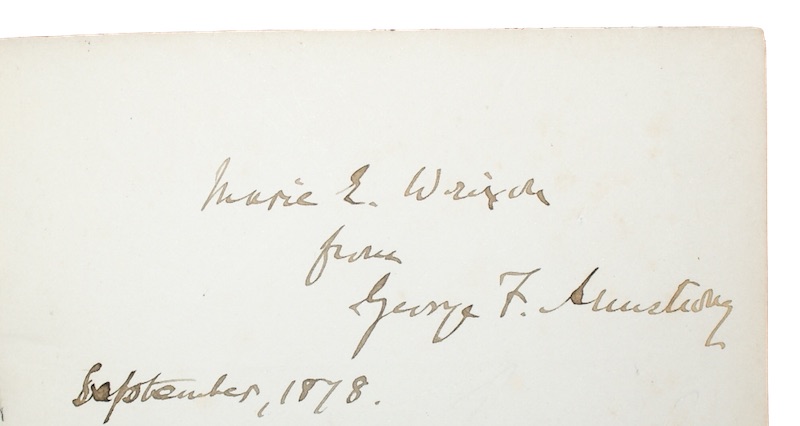 Marie E. Wrixon
from
George F. Armstrong
September, 1878.